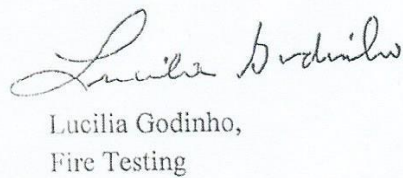 Lucilia Godinho
Lucilia Godinho,
Fire Testing